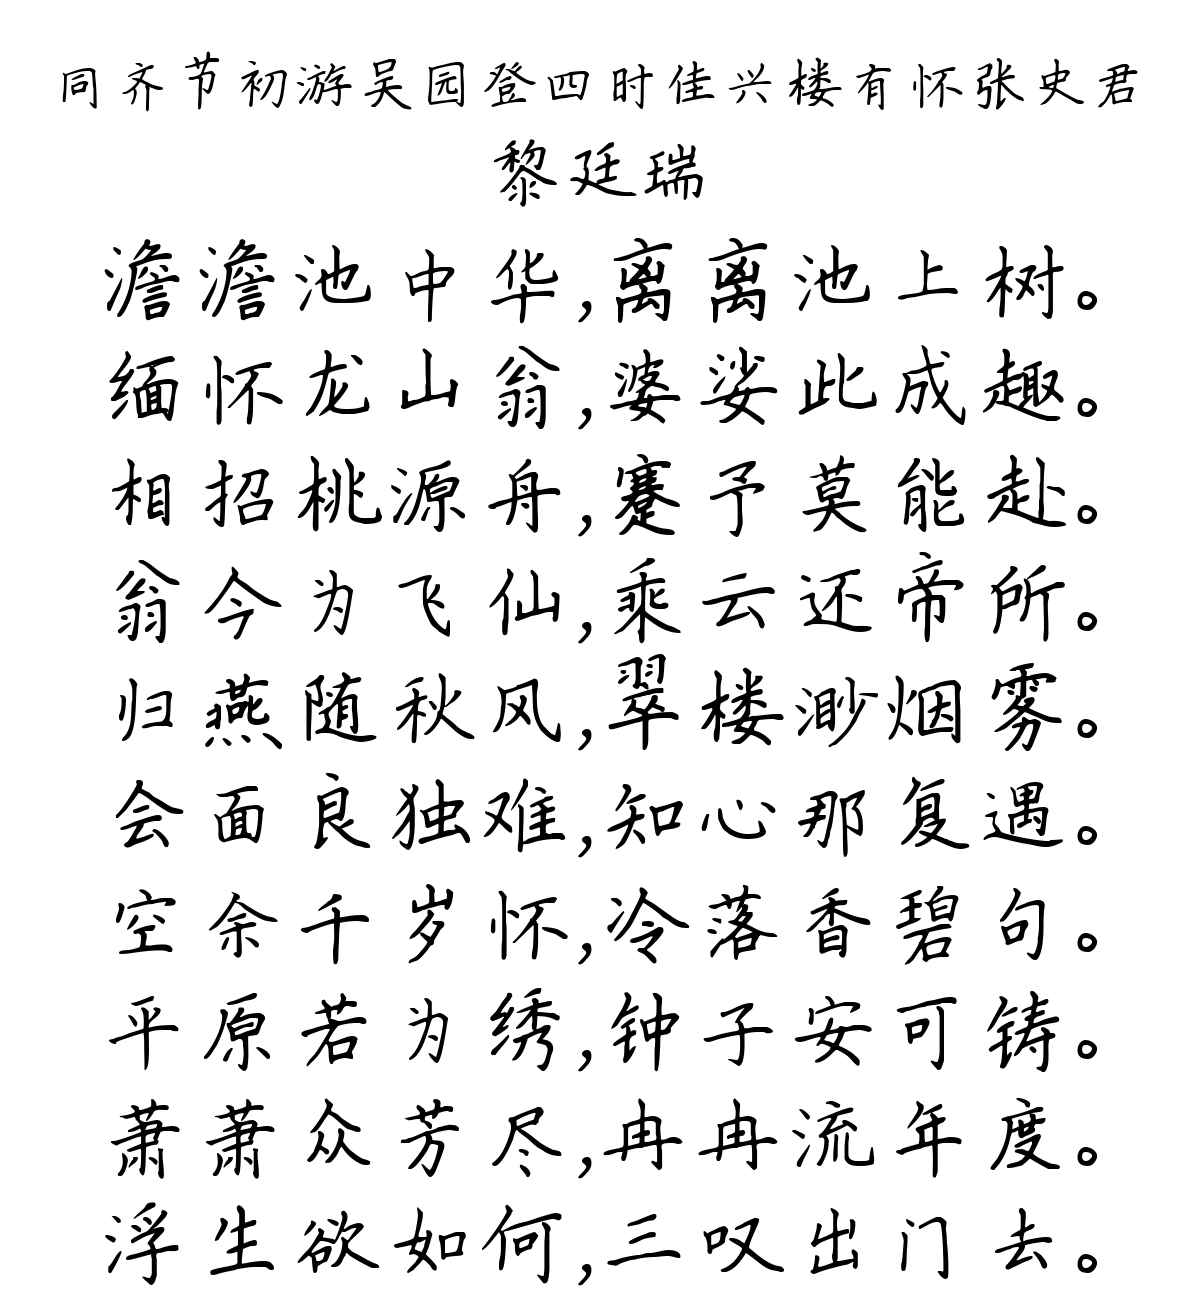 同齐节初游吴园登四时佳兴楼有怀张史君
黎廷瑞
澹澹池中华,离离池上树。
缅怀龙山翁,婆娑此成趣。
相招桃源舟,蹇予莫能赴。
翁今为飞仙,乘云还帝所。
归燕随秋风,翠楼渺烟雾。
会面良独难,知心那复遇。
空余千岁怀,冷落香碧句。
平原若为绣,钟子安可铸。
萧萧众芳尽,冉冉流年度。
浮生欲如何,三叹出门去。